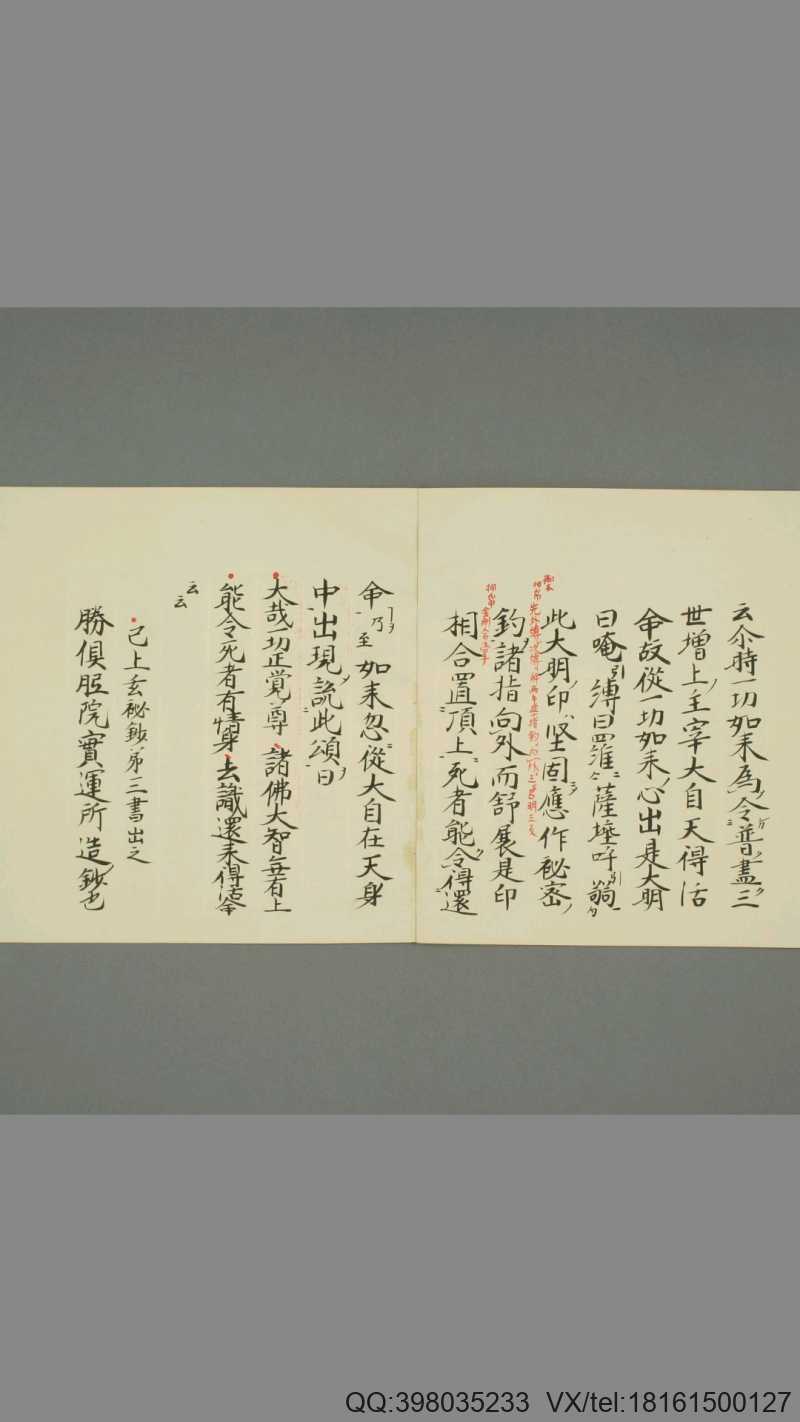 云尒時一切如来爲令普盡三
世増上主宰大自天得活
命故從一切如来心出是大明
曰唵引縛曰羅二合薩埵吽引
此大明印堅固應作秘密
鈎諸指向外而舒展是印
相合置頂上死者能令得還
命乃至如来忽從大自在天身
中出現説此頌曰
大哉一切正覚尊諸佛大智無有上
能令死者有情身去識還来得活命
云云
已上玄秘鈔第三書出之
勝倶胝院實運所造鈔也
QQ:398035233 VX/tel:18161500127